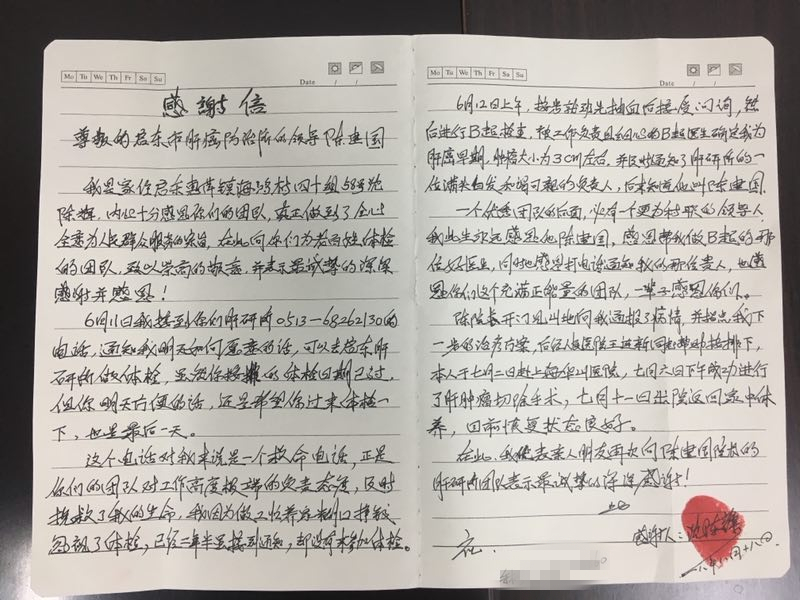 Mo Tu We Th Fr Sa Su
Date / /
感謝信
尊敬的启东市肝癌防治所的领导陈建国
我是家住启东惠萍镇海 村四十组58号沈
陈辉，内心十分感恩你们的团队，真正做到了全心
全意为人民群众服务的宗旨，在此向你们为老百姓体检
的团队，致以崇高的敬意，并表示最诚挚的深深
感谢并感恩！
6月11日我接到你们肝研所0513-68262130的
电话，通知我明天如何愿意的话，可以去启东肝
研所做体检，虽然你 的体检日期已过，
但你明天方便的话，还是希望你过来体检一
下，也是最后一天。
这个电话对我来说是一个救命电话，正是
你们的团队对工作高度极端的负责态度，及时
挽救了我的生命，我因为做工忙养家糊口
忽视了体检，已经二年半虽接到通知，却没有来参加体检。
Mo Tu We Th Fr Sa Su
Date / /
6月12日上午，按先 抽血后接受问询，然
后进行B超检查，被工作负责且细心的B超医生确定我为
肝癌早期，肿瘤大小为3cm左右，并及时通知了肝研所的一
位满头白发和蔼可亲的负责人，后来知道他叫陈建国。
一个优秀团队的后面，必有一个更为称职的领导人，
我此生永远感恩他陈建国，感恩帮我做B超的那
位好医生，同时也感恩打电话通知我的那位贵人，也感
恩你们这个充满正能量的团队，一辈子感恩你们。
陈院长开门见山地向我通报了病情，并指点我下
一步的治疗方案，后经人民医院王进新同志帮助安排下，
本人于七月二日赴上海中山医院，七月六日下午成功进行
了肝肿瘤切除手术，七月十一日出院返回家中休
养，目前恢复状态良好。
在此，我 亲人朋友再次向陈建国院长的
肝研所团队表示最诚挚的深深感谢！
感谢人：沈陈辉
一八年八月十八日